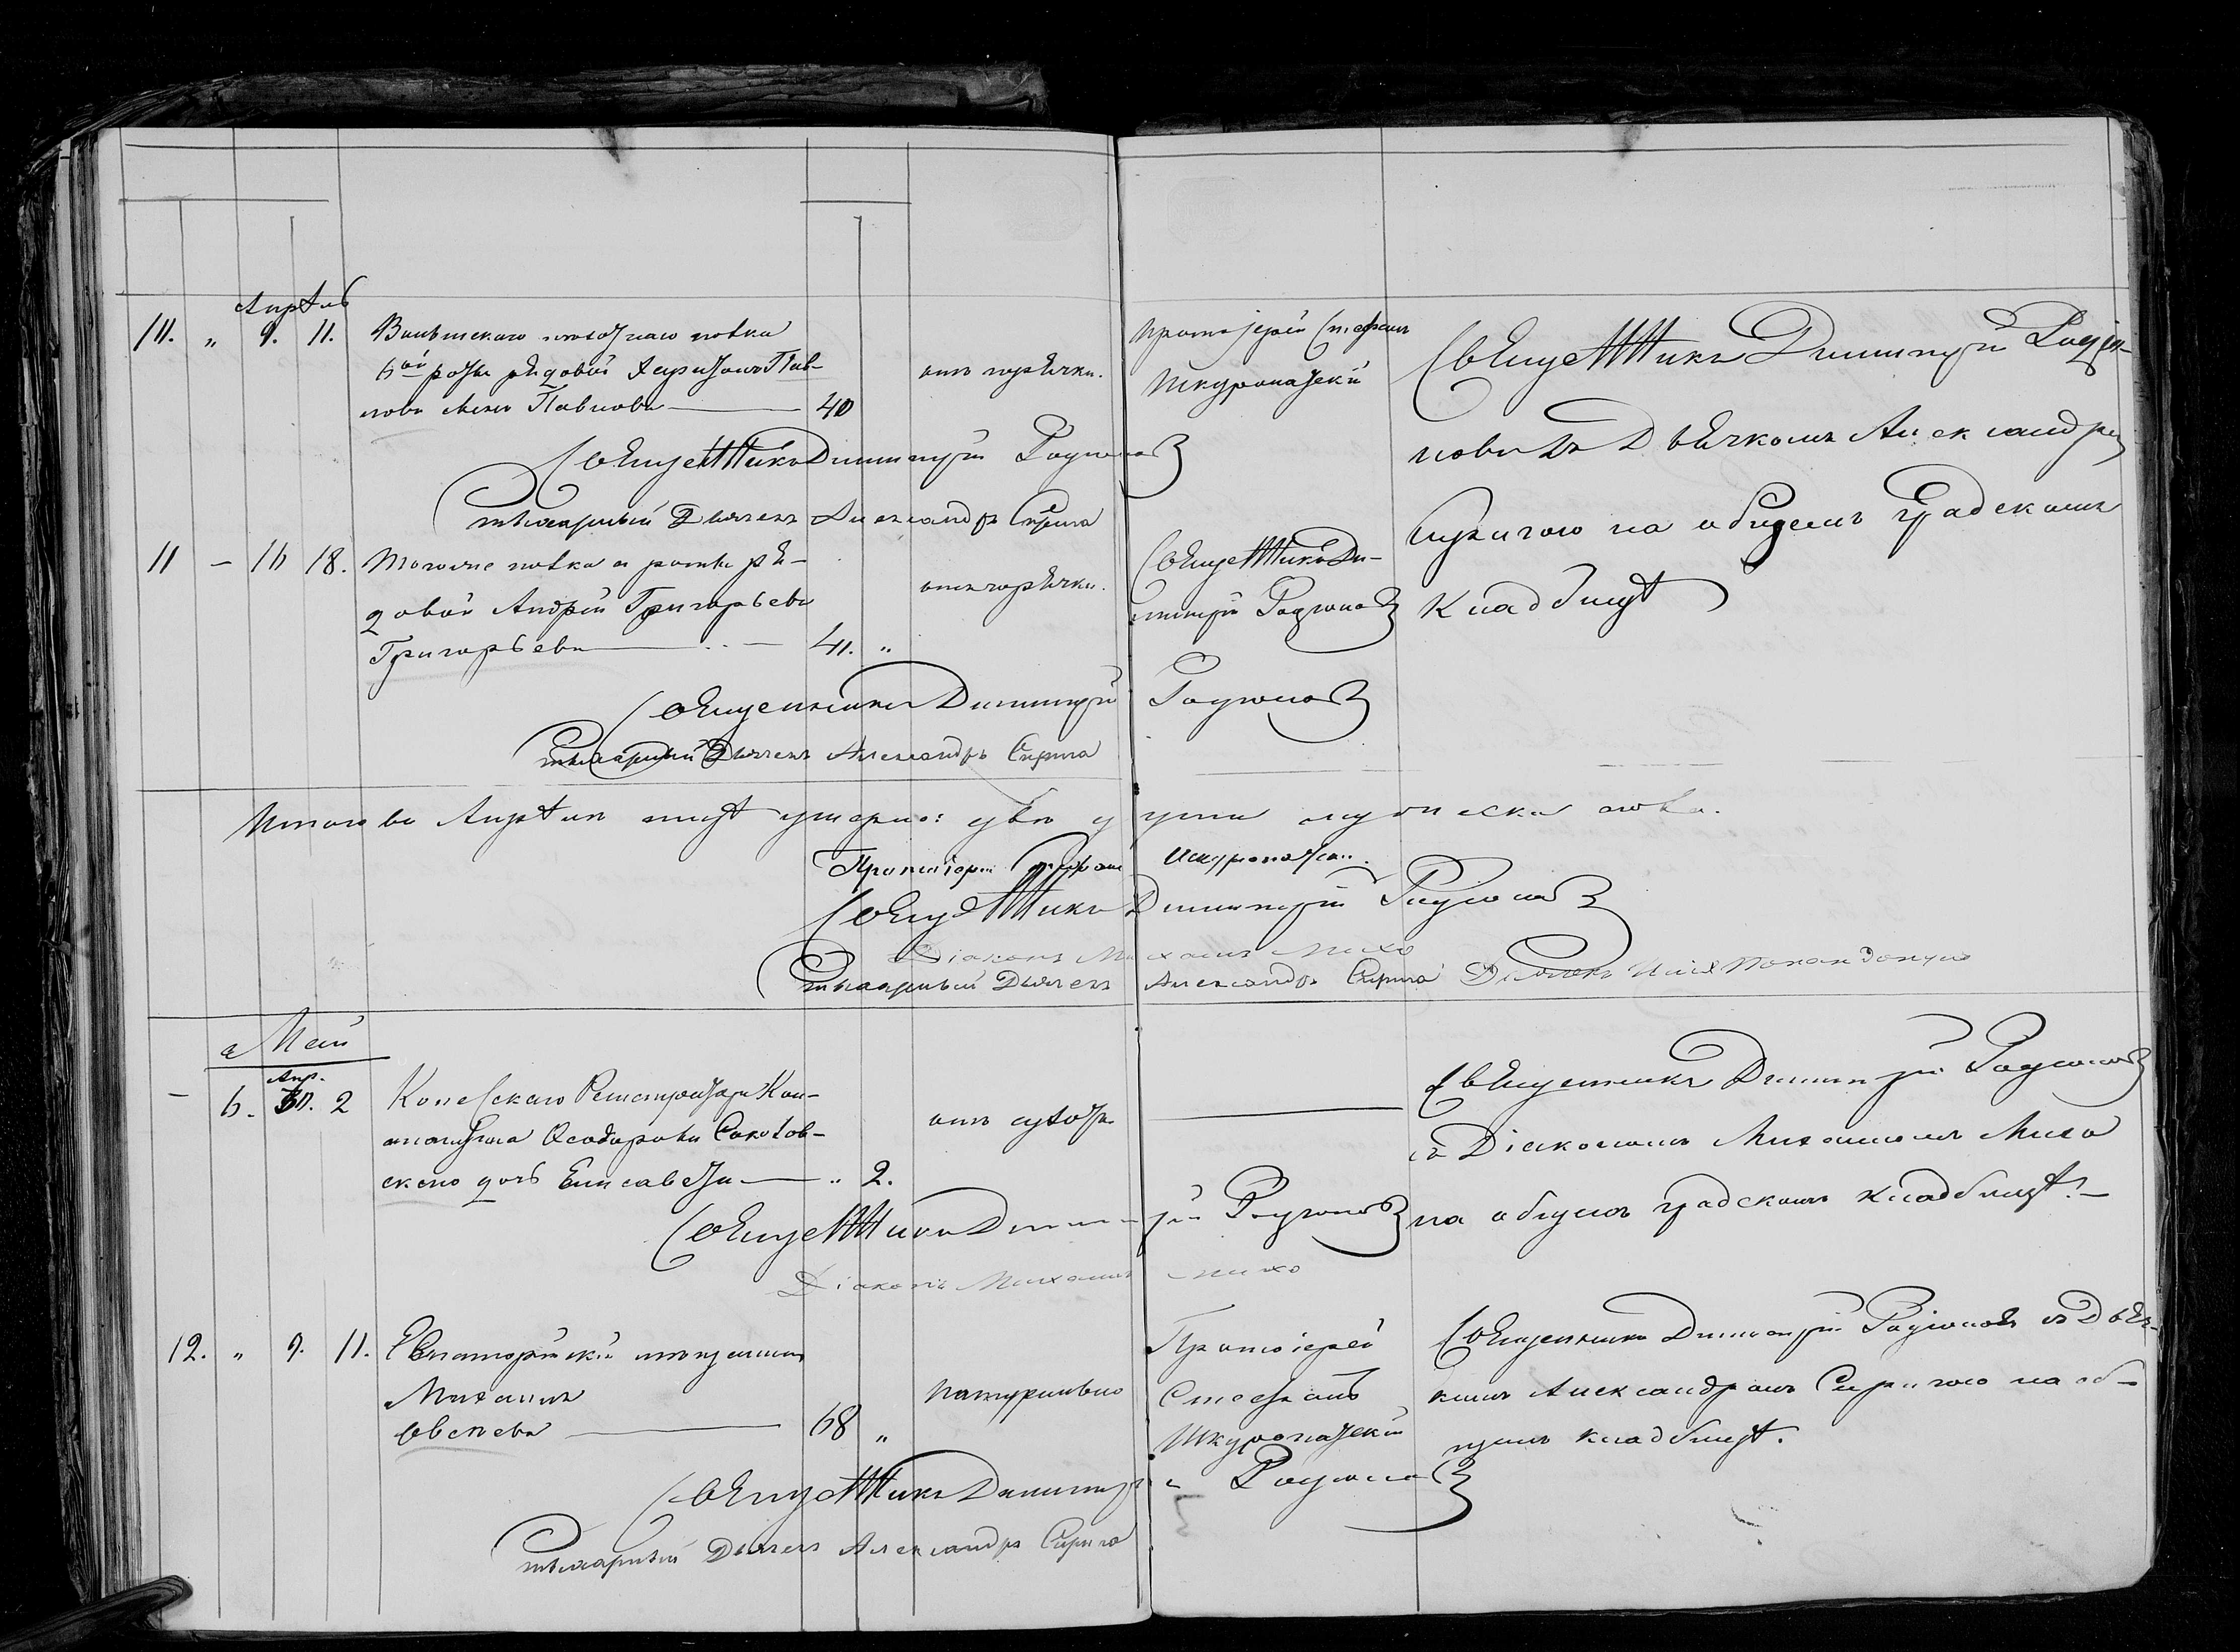 Апрѣль
10. " 9. 11. Волынскаго пѣхотнаго полка
6ой роты рядовой Харитонъ Пав-
ловъ Павловъ — 40
отъ горячки.
Протоіерей Стефанъ
Шкуропатскій
Священникъ Димитрій Родіо-
новъ съ дьячкомъ Александромъ
Сиригою на общемъ градскомъ
кладбищѣ
Священникъ Димитрій Родіоновъ
Дьячекъ Александръ Сирига
11 — 16 18. Тогоже полка роты ря-
довой Андрей Григорьевъ
Григорьевъ — 41. "
отъ горячки.
Священникъ Ди-
митрій Родіоновъ
Священникъ Димитрій Родіоновъ
Дьячекъ Александръ Сирига
Итого въ Апрѣлѣ умерло: двѣ души мужеска пола.
Протоіерей Стефанъ Шкуропатскій.
Священникъ Димитрій Родіоновъ
Діаконъ Михаилъ Михо
Дьячекъ Александръ Сирига Дьячекъ
Май
Апр.
— 6. 30. 2 Колежскаго Регистратора Кон-
стантина Ѳеодорова Соколов-
скаго дочь Елисавета — " 2.
отъ
Священникъ Димитрій Родіоновъ
съ Діакономъ Михаиломъ Михо
на общемъ градскомъ кладбищѣ. —
Священникъ Димитрій Родіоновъ
Діаконъ Михаилъ Михо
12. " 9. 11. Евпаторійскій мѣщанинъ
Михаилъ
Евсѣевъ — 68 "
натурально
Протоіерей
Стефанъ
Шкуропатскій
Священникъ Димитрій Родіоновъ съ Дьяч-
комъ Александромъ Сиригою на об-
щемъ кладбищѣ.
Священникъ Димитрій Родіоновъ
Дьячекъ Александръ Сирига